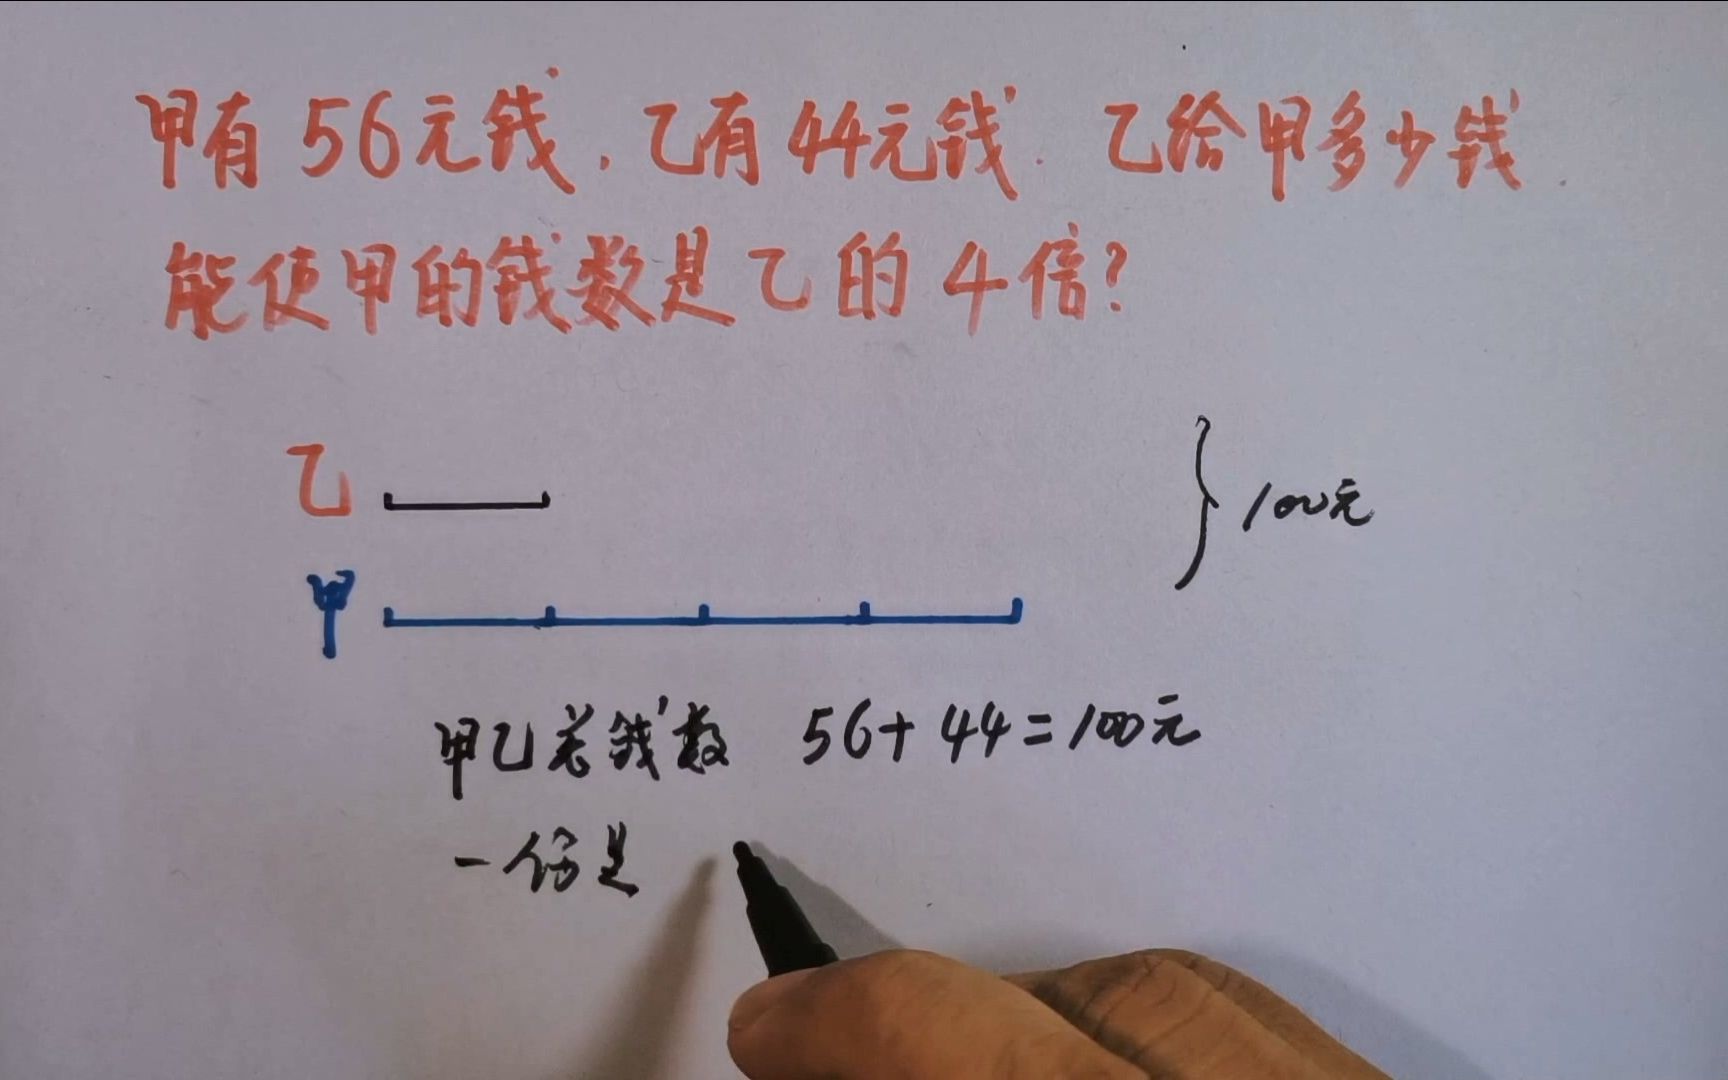 甲有56元钱,乙有44元钱.乙给甲多少钱
能使甲的钱数是乙的4倍?
乙
100元
甲
甲乙总钱数 56+44=100元
一份是